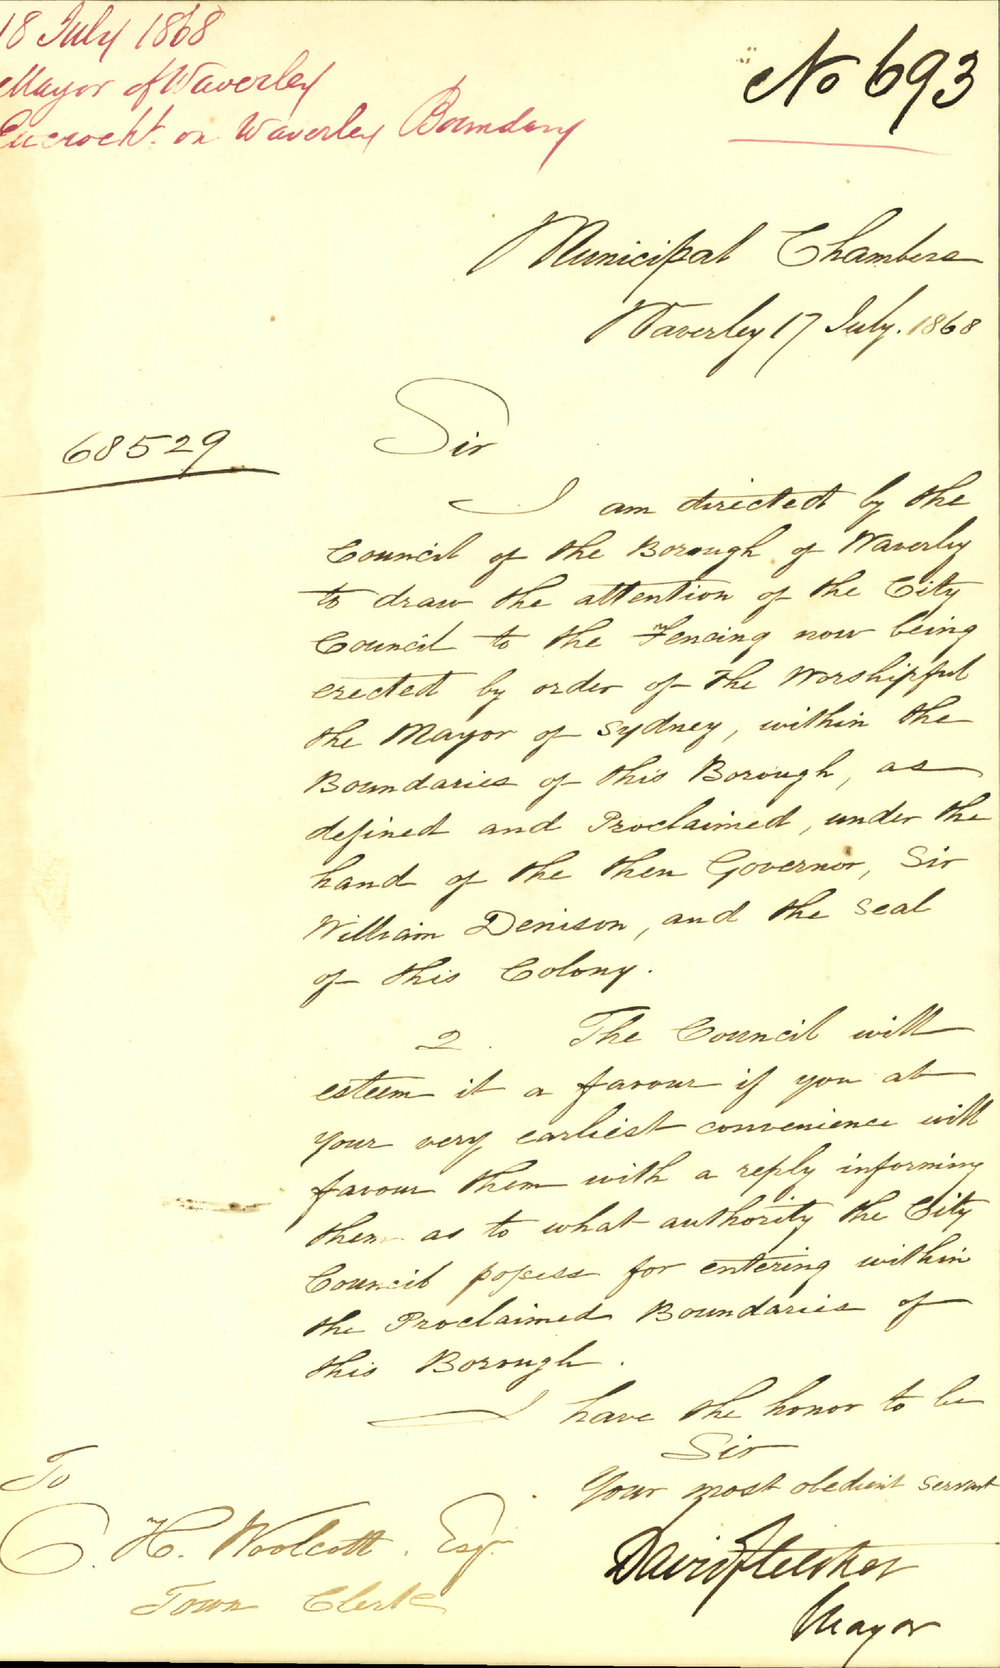 18 July 1868
Mayor of Waverley
Encrocht. on Waverley Boundary
No 693
Municipal Chambers
Waverley 17 July. 1868
68529
Sir
I am directed by the
Council of the Borough of Waverley
to draw the attention of the City
Council to the Fencing now being
erected by order of The Worshipful
the Mayor of Sydney, within the
Boundaries of this Borough, as
defined and Proclaimed, under the
hand of the then Governor, Sir
William Denison, and the seal
of this Colony.
2. The Council will
esteem it a favour if you at
your very earliest convenience will
favour them with a reply informing
them as to what authority the City
Council possess for entering within
the Proclaimed Boundaries of
this Borough.
I have the honor to be
Sir
Your most obedient servant
David Fletcher
Mayor
To
C. H. Woolcott. Esqr.
Town Clerk